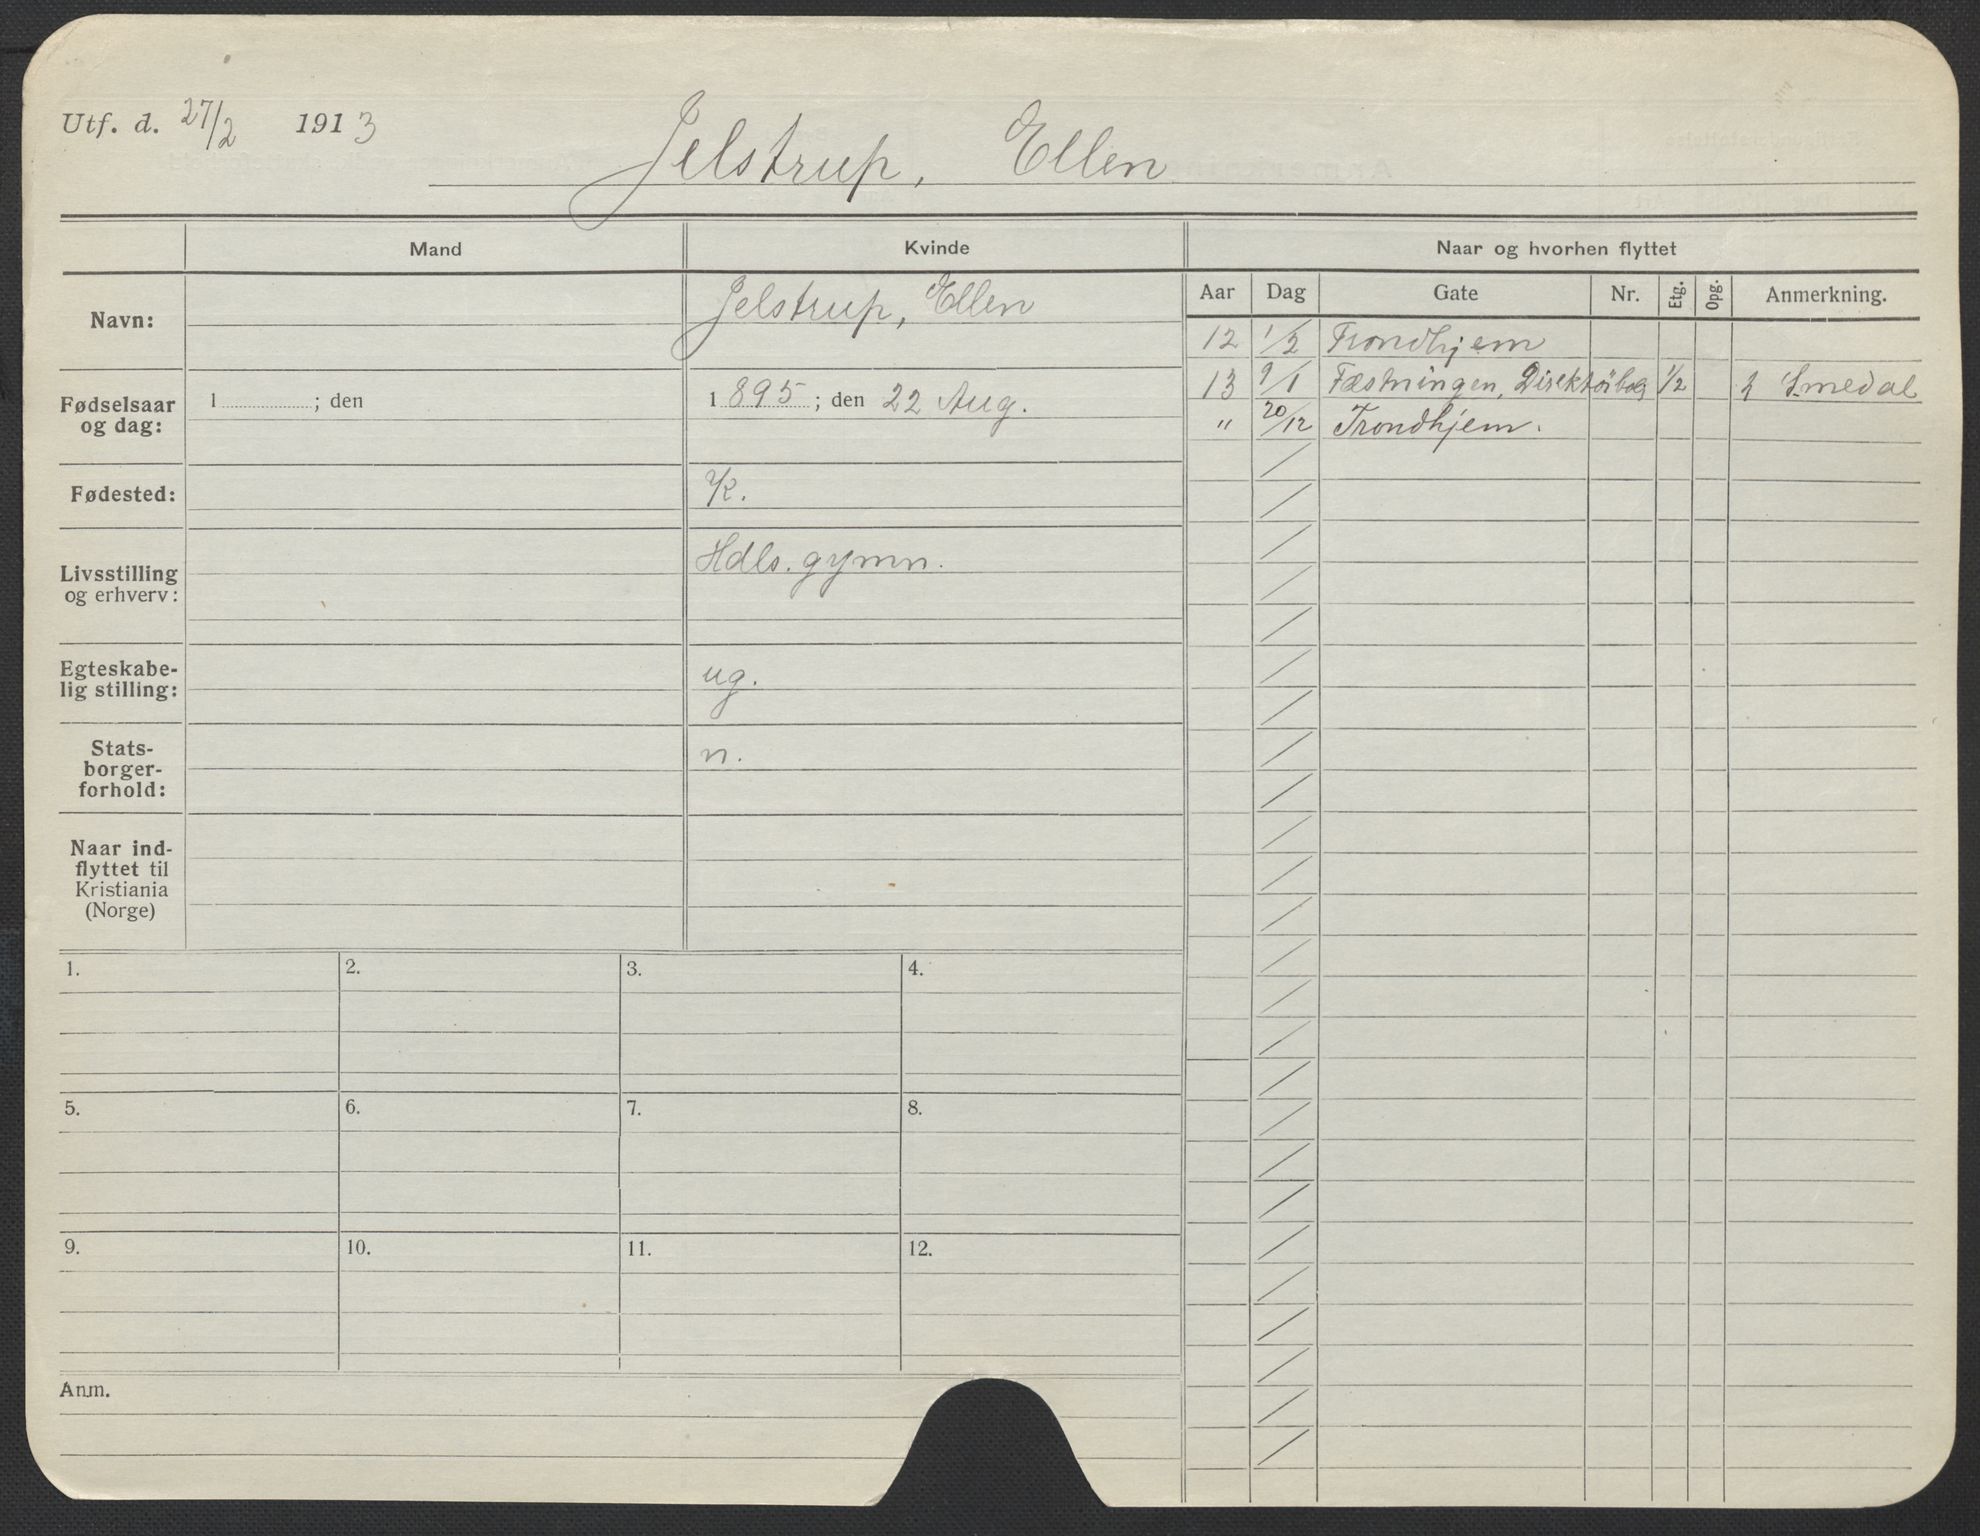 Utf. d. 27/2 1913
Jelstrup, Ellen
Mand
Kvinde
Naar og hvorhen flyttet
Navn:
Jelstrup, Ellen
Fødselsaar
og dag:
1 ; den
1895; den 22 Aug.
Fødested:
K.
Livsstilling
og erhverv:
Hdls. gymn.
Egteskabe-
lig stilling:
ug.
Stats-
borger-
forhold:
n.
Naar ind-
flyttet til
Kristiania
(Norge)
Aar Dag Gate Nr. Etg. Opg. Anmerkning.
12 1/2 Trondhjem
13 9/1 Fæstningen, 1/2 Smedal
" 20/12 Trondhjem.
1. 2. 3. 4.
5. 6. 7. 8.
9. 10. 11. 12.
Anm.